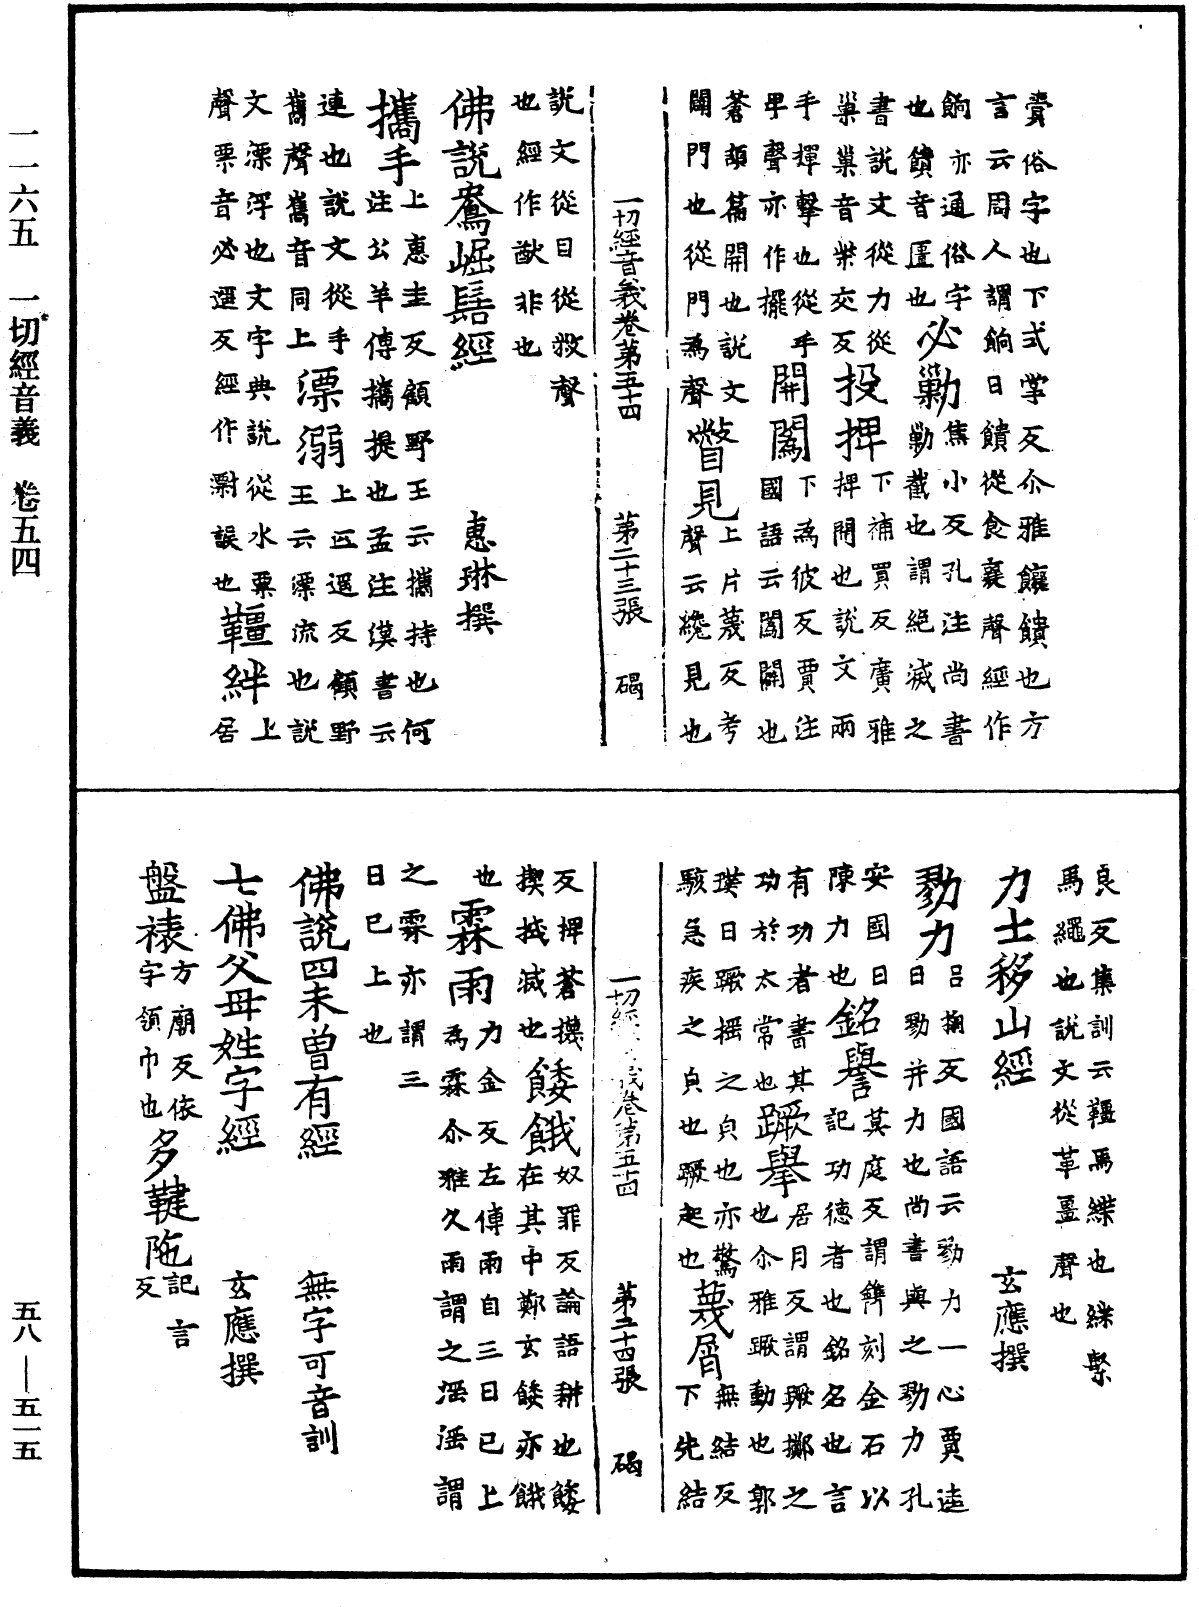 一一六五　一切經音義　卷五四
五八—五一五
賷俗字也下式掌反尒雅饟饋也方
言云周人謂餉曰饋從食襄聲經作
餉亦通俗字
也饋音匱也
必勦
焦小反孔注尚書
勦截也謂絕滅之
書說文從力從
巢巢音柴交反
投捭
下補買反廣雅
捭開也說文兩
手揮擊也從手
卑聲亦作擺
開闔
下為彼反賈注
國語云闔開也
蒼頡篇開也說文
闢門也從門為聲
瞥見
上片蔑反考
聲云纔見也
一切經音義卷第五十四　第二十三張　碣
說文從目從敝聲
也經作㡀非也
佛說鴦崛髻經　惠琳撰
攜手
上惠圭反顧野王云攜持也何
注公羊傳攜提也孟注漢書云
連也說文從手
巂聲巂音同上
漂溺
上匹遥反顧野
王云漂流也說
文漂浮也文字典說從水票
聲票音必遥反經作㵱誤也
韁絆
上
居
良反集訓云韁馬緤也緤繫
馬繩也說文從革畺聲也
力士移山經　玄應撰
勠力
呂掬反國語云勠力一心賈逵
曰勠并力也尚書與之勠力孔
安國曰
陳力也
銘譽
莫庭反謂鐫刻金石以
記功德者也銘名也言
有功者書其
功於太常也
蹶舉
居月反謂蹶擲之
也尒雅蹶動也郭
璞曰蹶摇之皃也亦驚
駭急疾之皃也蹶起也
蔑屑
無結反
下先結
一切經音義卷第五十四　第二十四張　碣
反捭蒼機
揳搣滅也
餧餓
奴罪反論語耕也餧
在其中鄭玄餧亦餓
也
霖雨
力金反左傳雨自三日已上
為霖尒雅久雨謂之淫淫謂
之霖亦謂三
日已上也
佛說四未曾有經　無字可音訓
七佛父母姓字經　玄應撰
盤裱
方廟反依
字領巾也
多鞬陁
記言
反